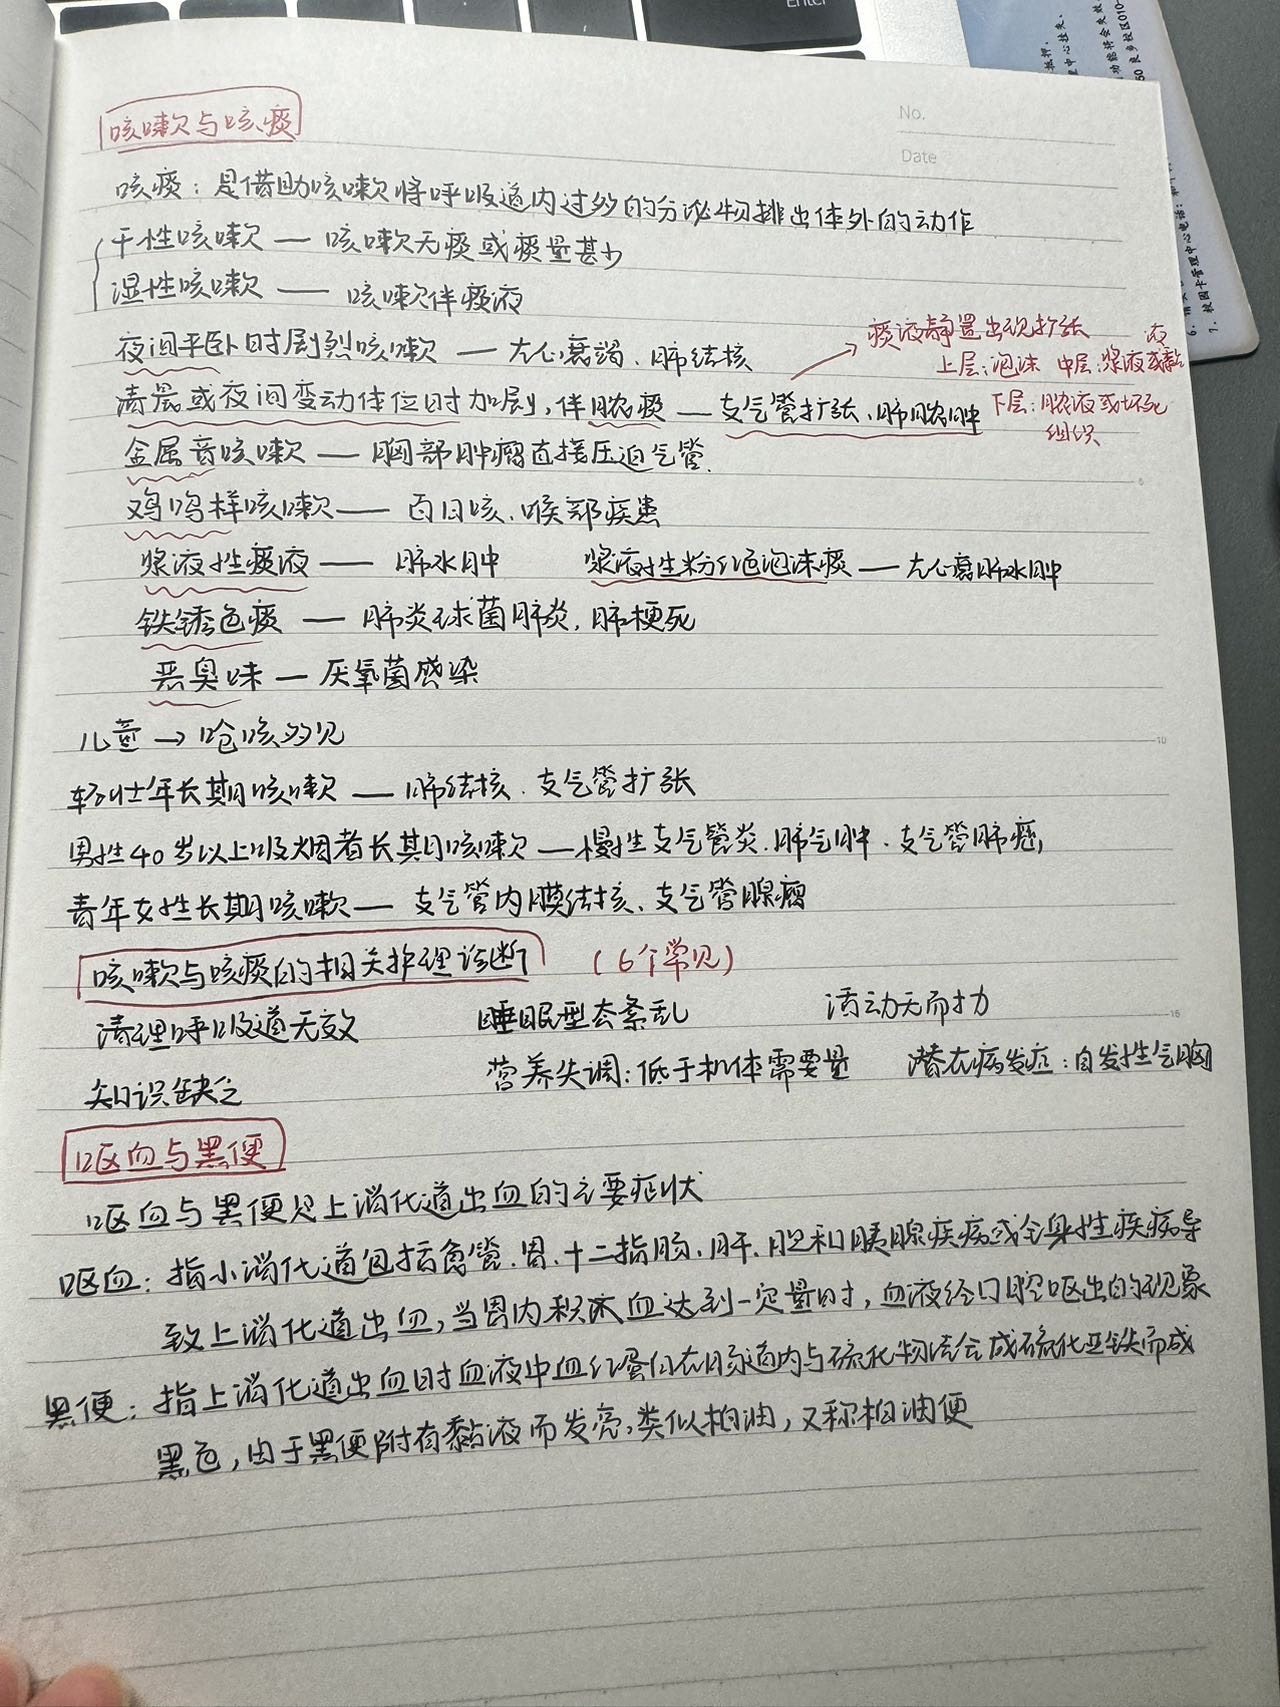 Enter
No.
Date
咳嗽与咳痰
咳痰：是借助咳嗽将呼吸道内过多的分泌物排出体外的动作
干性咳嗽 — 咳嗽无痰或痰量甚少
湿性咳嗽 — 咳嗽伴痰液
夜间平卧时剧烈咳嗽 — 左心衰竭、肺结核
痰液静置出现扩张
上层：泡沫 中层：浆液或黏液
下层：脓液或坏死
组织
清晨或夜间变动体位时加剧，伴脓痰 — 支气管扩张、肺脓肿
金属音咳嗽 — 胸部肿瘤直接压迫气管
鸡鸣样咳嗽 — 百日咳、喉部疾患
浆液性痰液 — 肺水肿 浆液性粉红色泡沫痰 — 左心衰肺水肿
铁锈色痰 — 肺炎球菌肺炎，肺梗死
恶臭味 — 厌氧菌感染
儿童 → 呛咳多见
轻壮年长期咳嗽 — 肺结核、支气管扩张
男性40岁以上吸烟者长期咳嗽 — 慢性支气管炎、肺气肿、支气管肺癌
青年女性长期咳嗽 — 支气管内膜结核、支气管腺瘤
咳嗽与咳痰的相关护理诊断 （6个常见）
清理呼吸道无效 睡眠型态紊乱 活动无耐力
知识缺乏 营养失调：低于机体需要量 潜在病发症：自发性气胸
呕血与黑便
呕血与黑便是上消化道出血的主要症状
呕血：指小消化道包括食管、胃、十二指肠、肝、胆和胰腺疾病或全身性疾病导
致上消化道出血，当胃内积血达到一定量时，血液经口腔呕出的现象
黑便：指上消化道出血时血液中血红蛋白在肠道内与硫化物结合成硫化亚铁而成
黑色，由于黑便附有黏液而发亮，类似柏油，又称柏油便
5
10
15
7. 校园卡管理中心电话：